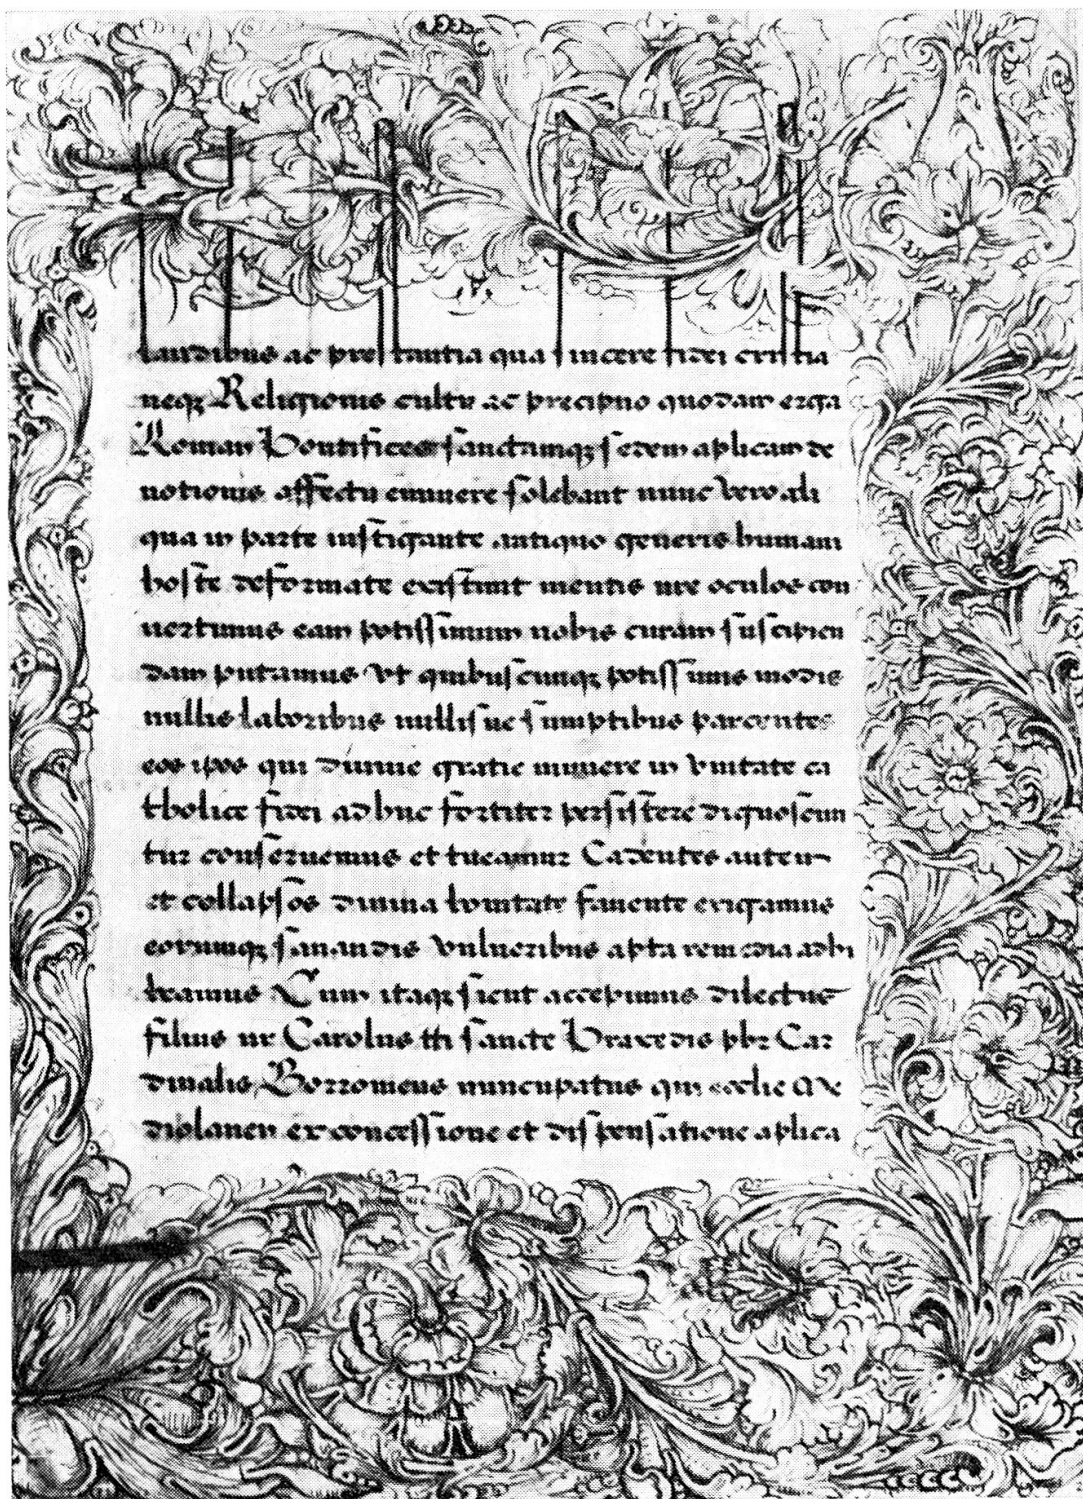 laudibus ac prestantia qua sincere fidei cristia
neqz Religionis cultu ac precipuo quodam erga
Roman Pontifices sanctamqz sedem aplicam de
uotionis affectu eminere solebant nunc vero ali
qua in parte instigante antiquo generis humani
hoste deformate existunt mentis nre oculos con
uertimus eam potissimum nobis curam suscipien
dam putamus vt quibuscunqz potissimis modis
nullis laboribus nullisue sumptibus parcentes
eos ipos qui diuine gratie munere in vnitate ca
tholice fidei adhuc fortiter persistere dignoscun
tur conseruemus et tueamur Cadentes autem
et collapsos diuina bonitate fauente erigamus
eorumqz sanandis vulneribus apta remedia adhi
beamus Cum itaqz sicut accepimus dilectus
filius nr Carolus tti sancte Praxedis pbr Car
dinalis Borromeus nuncupatus qui ecclie Me
diolanen ex concessione et dispensatione aplica